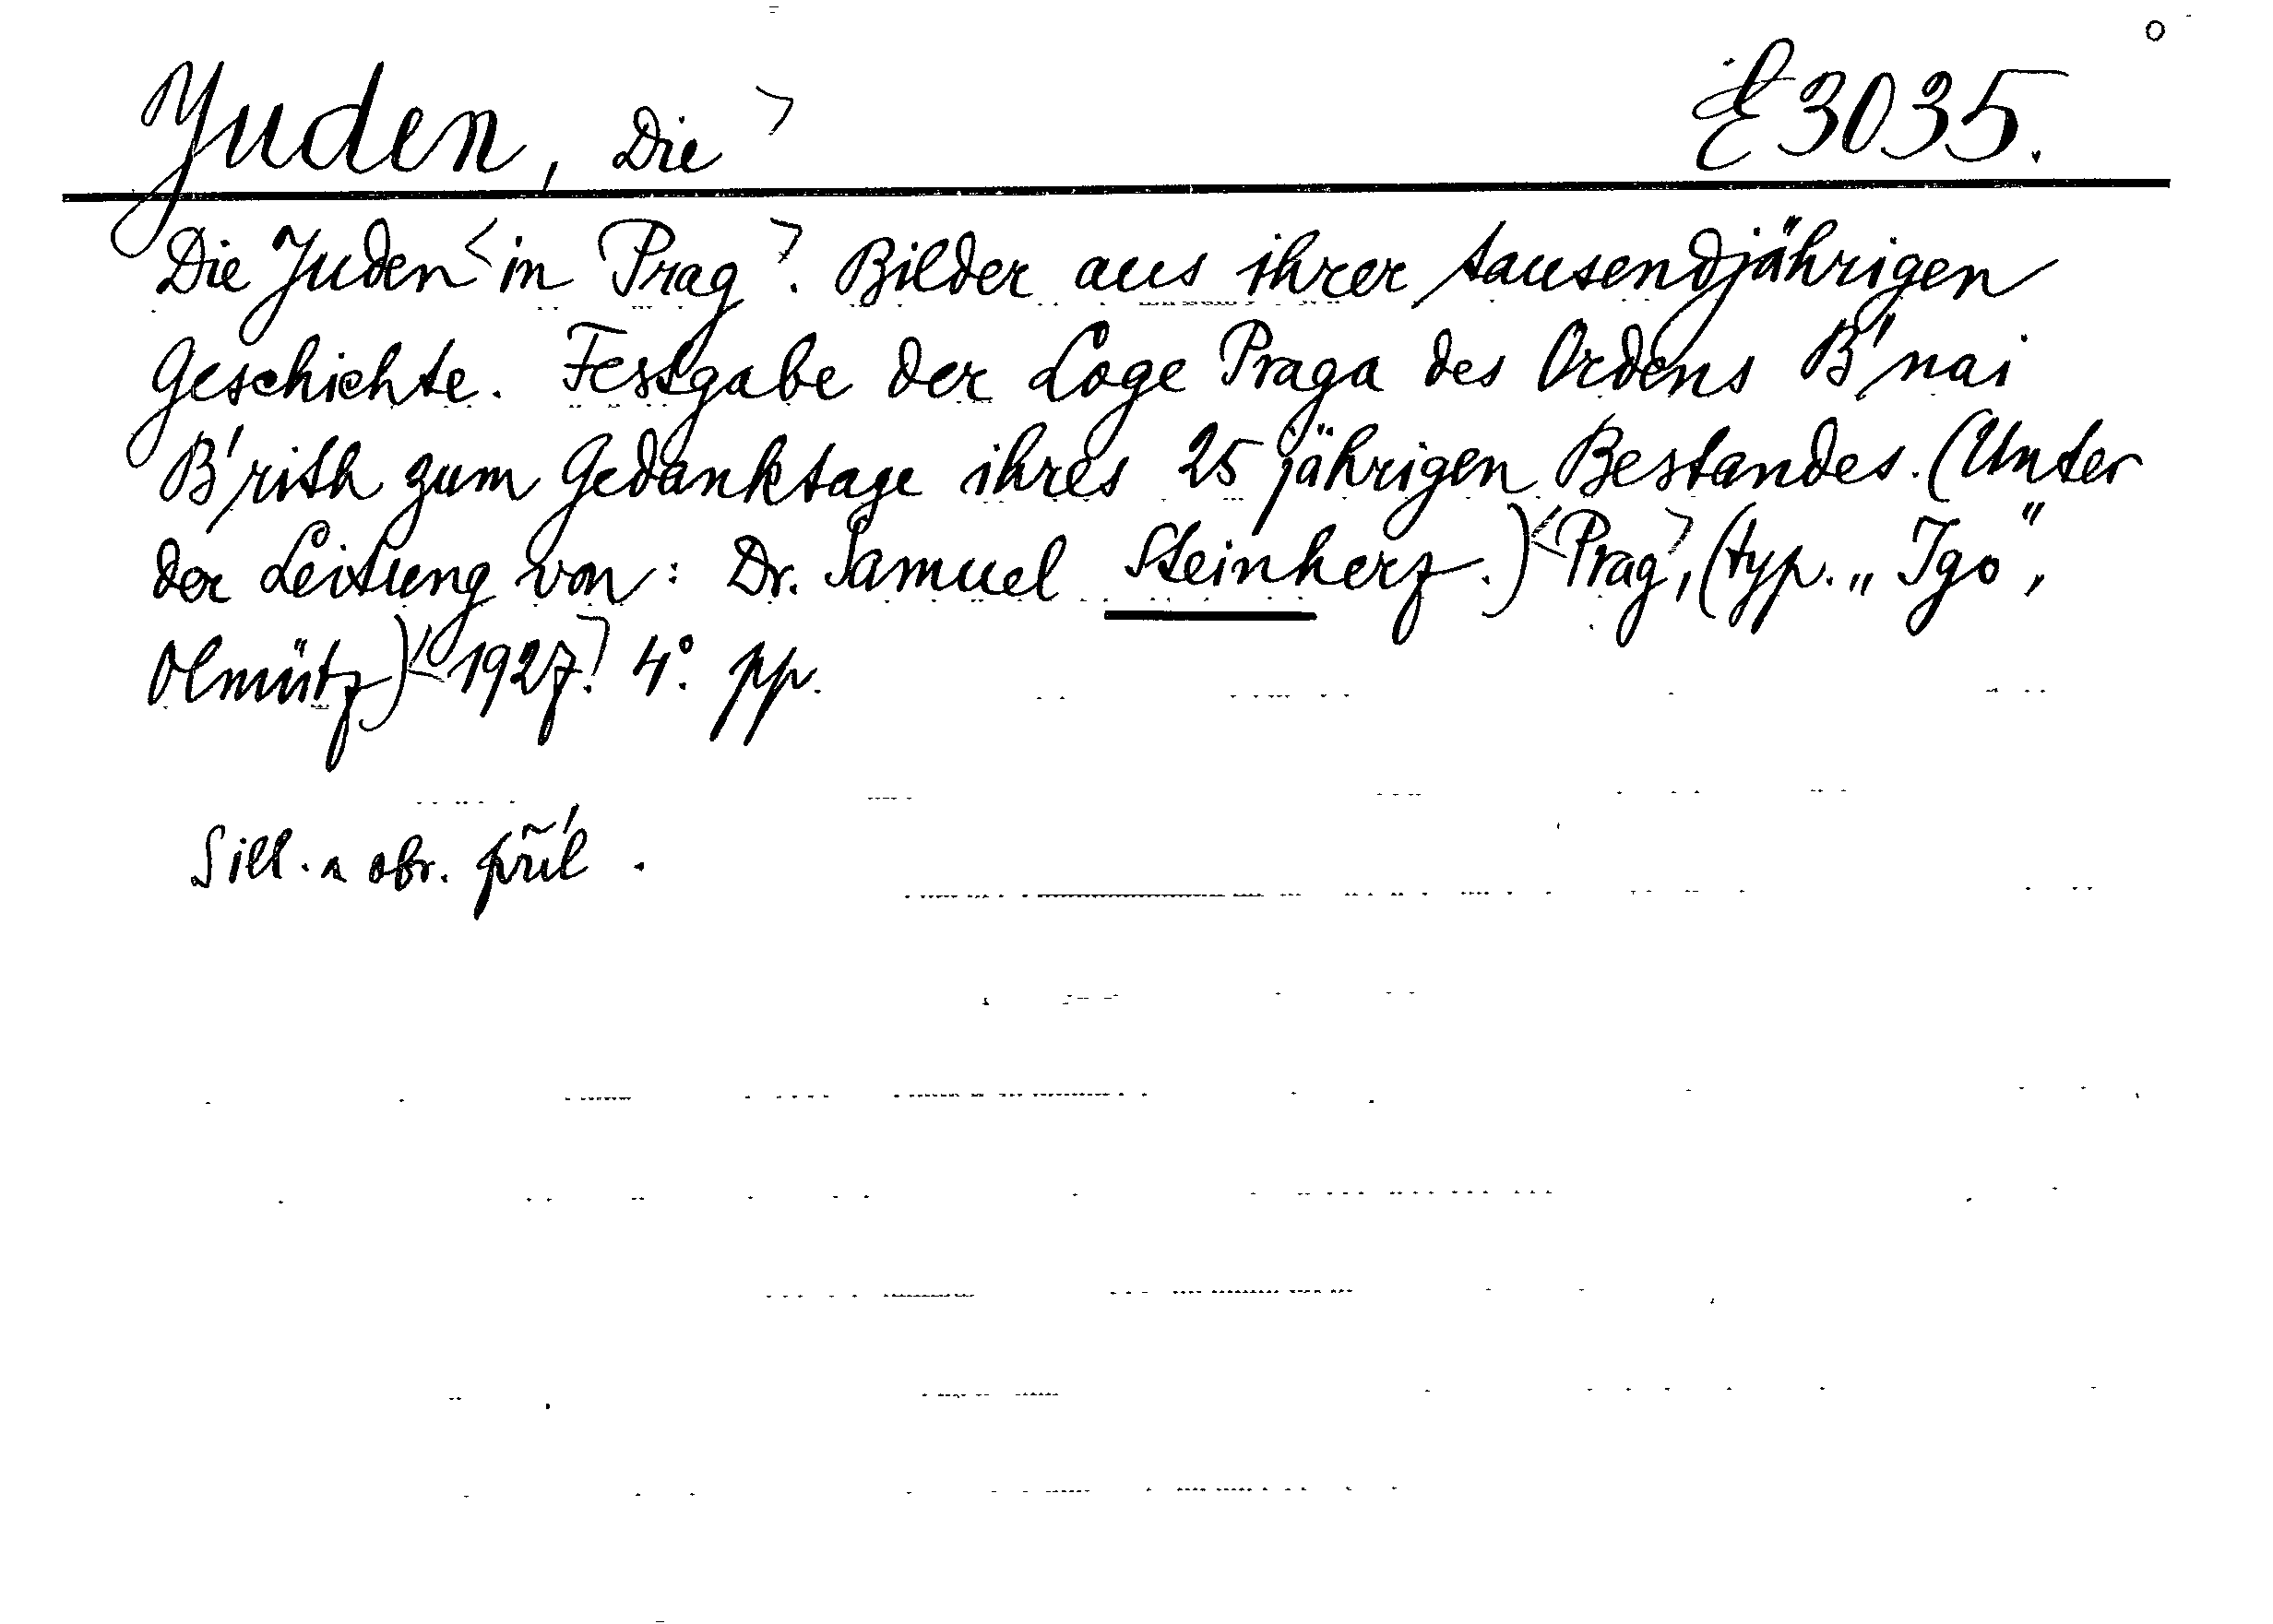 Juden, Die E 3035.
Die Juden in Prag. Bilder aus ihrer tausendjährigen
Geschichte. Festgabe der Loge Praga des Ordens B'nai
B'rith zum Gedanktage ihres 25 jährigen Bestandes. (Unter
der Leitung von: Dr. Samuel Steinherz.) Prag, (typ. „Igo",
Olmütz) 1927. 4° pp.
S ill. a obr. příl.